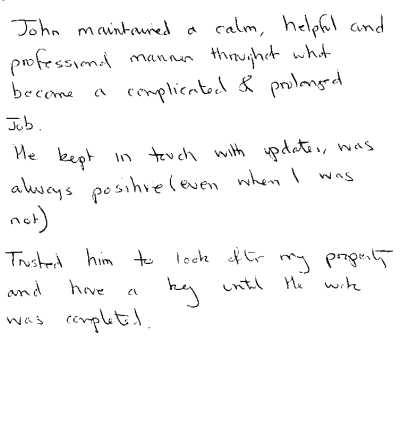 John maintained a calm, helpful and
professional manner throughout what
become a complicated & prolonged
Job.
He kept in touch with updates, was
always positive (even when I was
not)
Trusted him to look after my property
and have a key until the work
was completed.